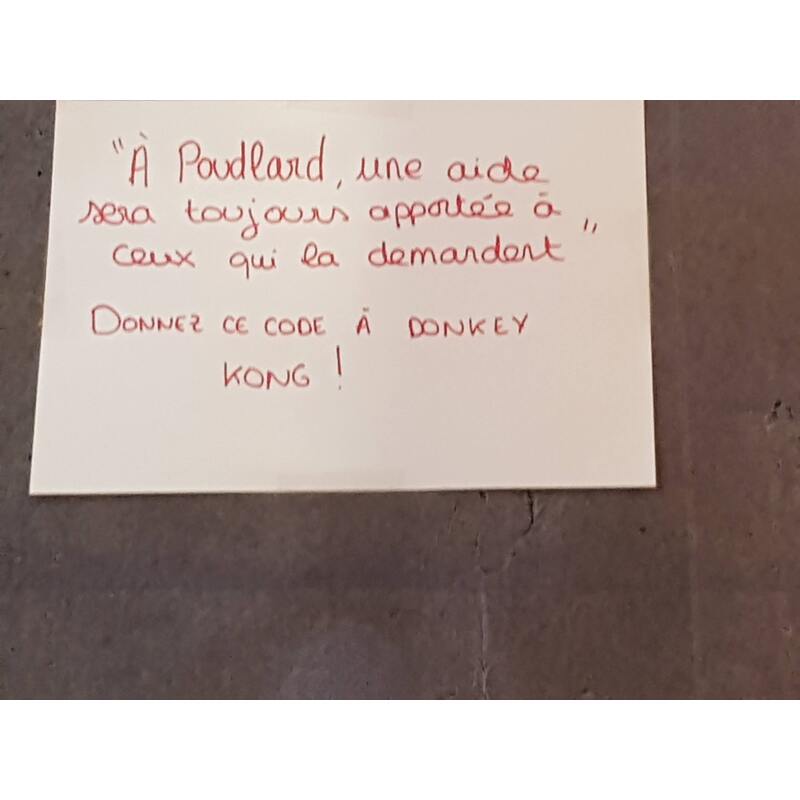 "À Poudlard, une aide
sera toujours apportée à
ceux qui la demandent"
DONNEZ CE CODE À DONKEY
KONG !